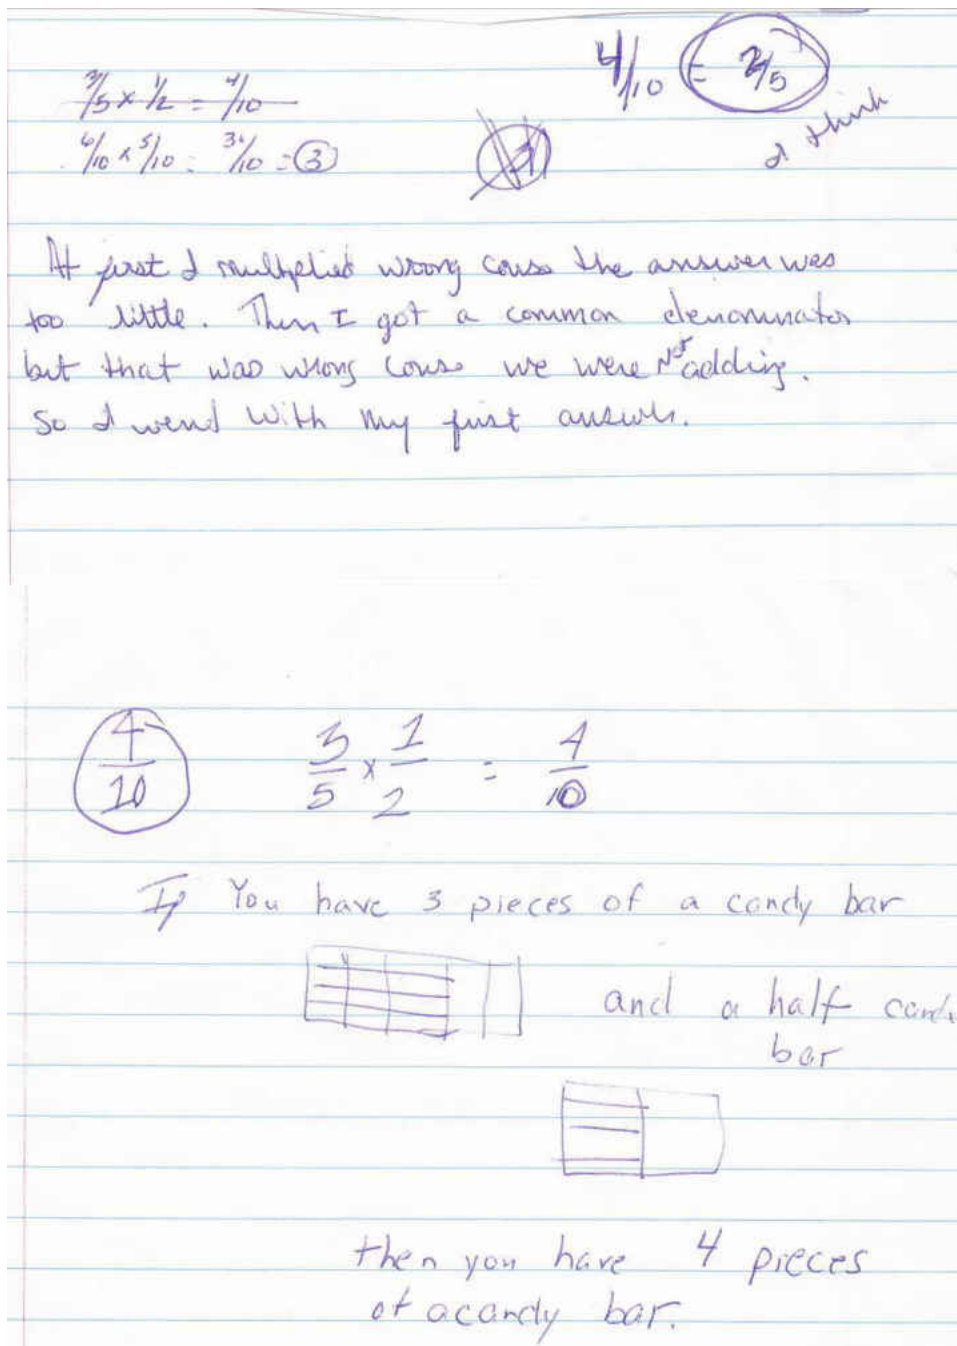 4/10 = 2/5
I think
3/5 × 1/2 = 4/10
6/10 × 5/10 = 30/10 = 3
At first I multiplied wrong cause the answer was
too little. Then I got a common denominator
but that was wrong cause we were Not adding.
So I wend With my first answer.
4/10 3/5 × 1/2 = 4/10
If You have 3 pieces of a candy bar
and a half
bar
then you have 4 pieces
of a candy bar.